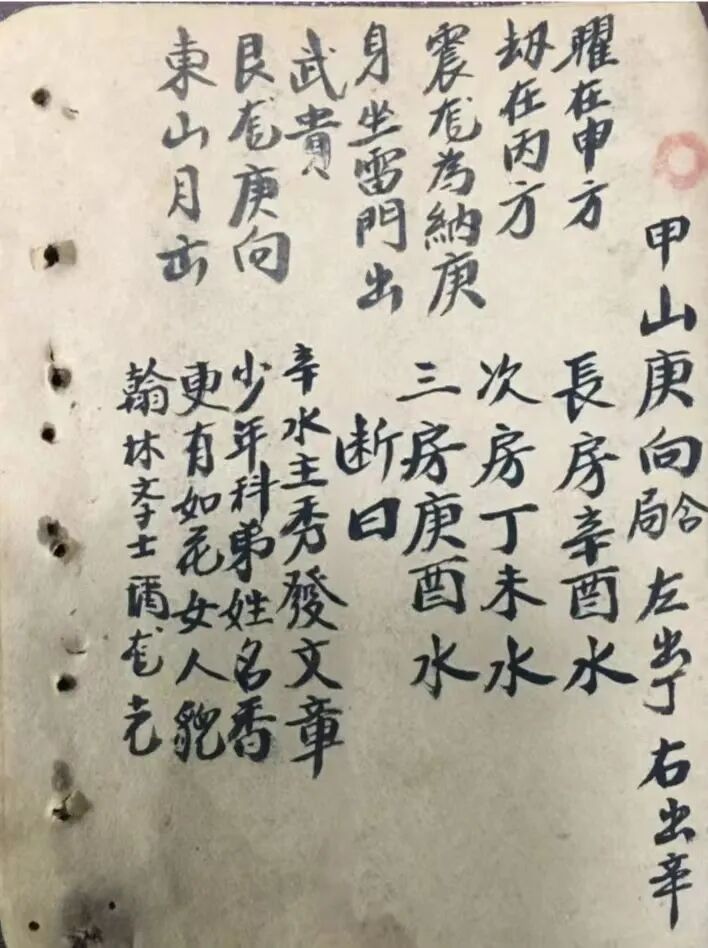 甲山庚向合局左出丁右出辛
曜在申方
劫在丙方
震龙為納庚
身坐雷門出
武貴
艮龙庚向
東山月出
長房辛酉水
次房丁未水
三房庚酉水
断曰
辛水主秀發文章
少年科弟姓名香
更有如花女人貌
翰林斈士龙